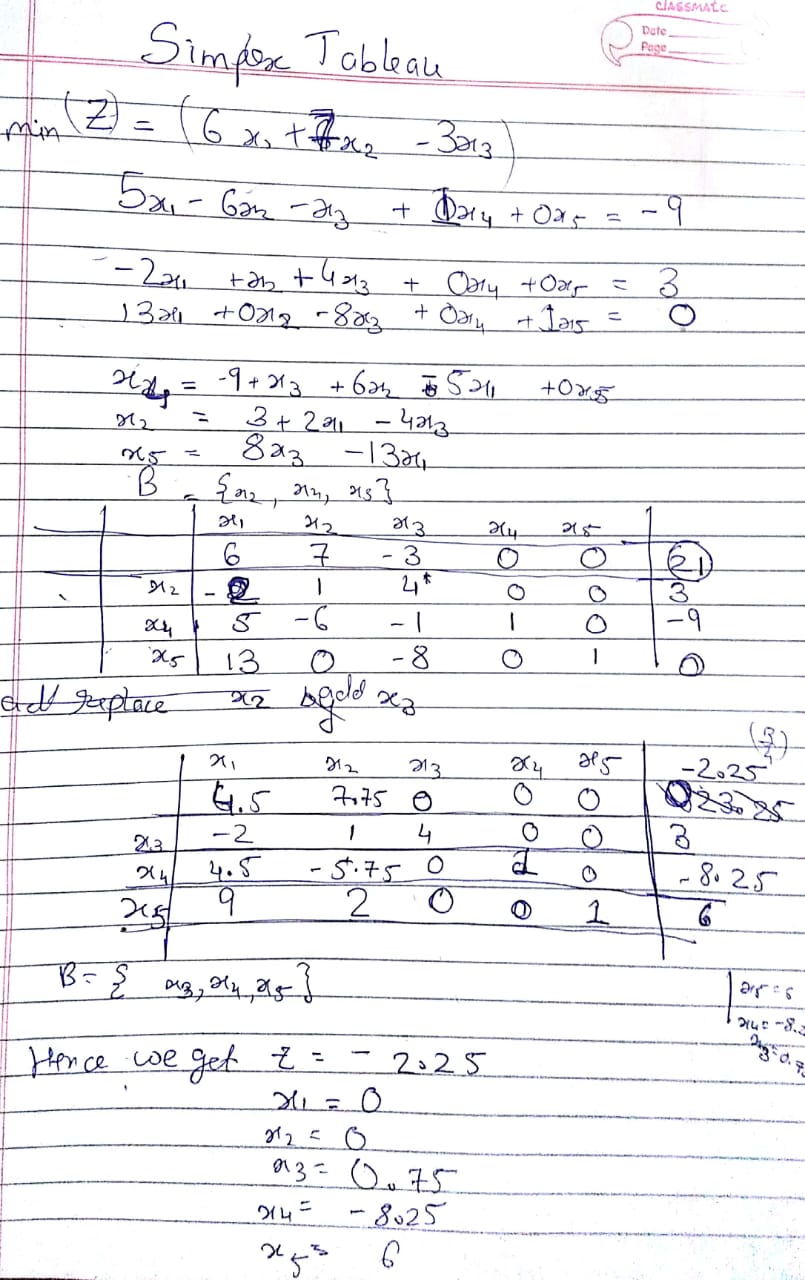 CLASSMATE
Date
Page
Simplex Tableau
min (Z) = (6x₁ + 7x₂ - 3x₃)
5x₁ - 6x₂ - x₃ + 1x₄ + 0x₅ = -9
-2x₁ + x₂ + 4x₃ + 0x₄ + 0x₅ = 3
13x₁ + 0x₂ - 8x₃ + 0x₄ + 1x₅ = 0
x₄ = -9 + x₃ + 6x₂ - 5x₁ + 0x₅
x₂ = 3 + 2x₁ - 4x₃
x₅ = 8x₃ - 13x₁
B = {x₂, x₄, x₅}
x₁ x₂ x₃ x₄ x₅
6 7 -3 0 0 21
x₂ -2 1 4* 0 0 3
x₄ 5 -6 -1 1 0 -9
x₅ 13 0 -8 0 1 0
replace x₂ x₃
(3/4)
x₁ x₂ x₃ x₄ x₅ -2.25
4.5 7.75 0 0 0 023.25
x₃ -2 1 4 0 0 3
x₄ 4.5 -5.75 0 1 0 -8.25
x₅ 9 2 0 0 1 6
B = { x₃, x₄, x₅ }
x₅ = 6
x₄ = -8.2
x₃ = 0.7
Hence we get Z = - 2.25
x₁ = 0
x₂ = 0
x₃ = 0.75
x₄ = -8.25
x₅ = 6